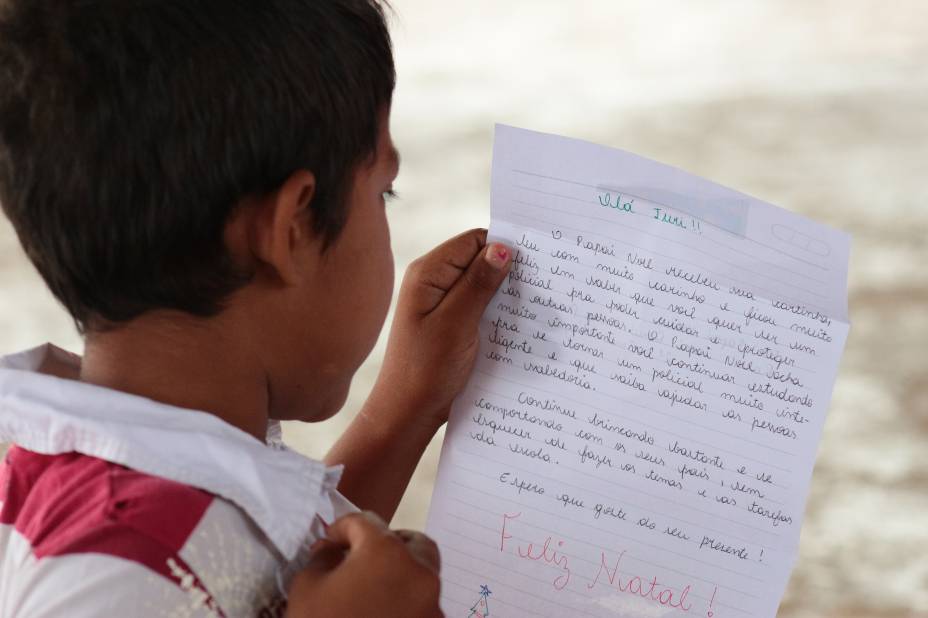 Olá Iuri!!
O Papai Noel recebeu sua cartinha,
leu com muito carinho e ficou muito
feliz em saber que você quer ser um
policial pra poder cuidar e proteger
as outras pessoas. O Papai Noel acha
muito importante você continuar estudando
pra se tornar um policial muito inte-
ligente e que saiba ajudar as pessoas
com sabedoria.
Continue brincando bastante e se
comportando com os seus pais, sem
esquecer de fazer os temas e as tarefas
da escola.
Espero que goste do seu presente!
Feliz Natal!